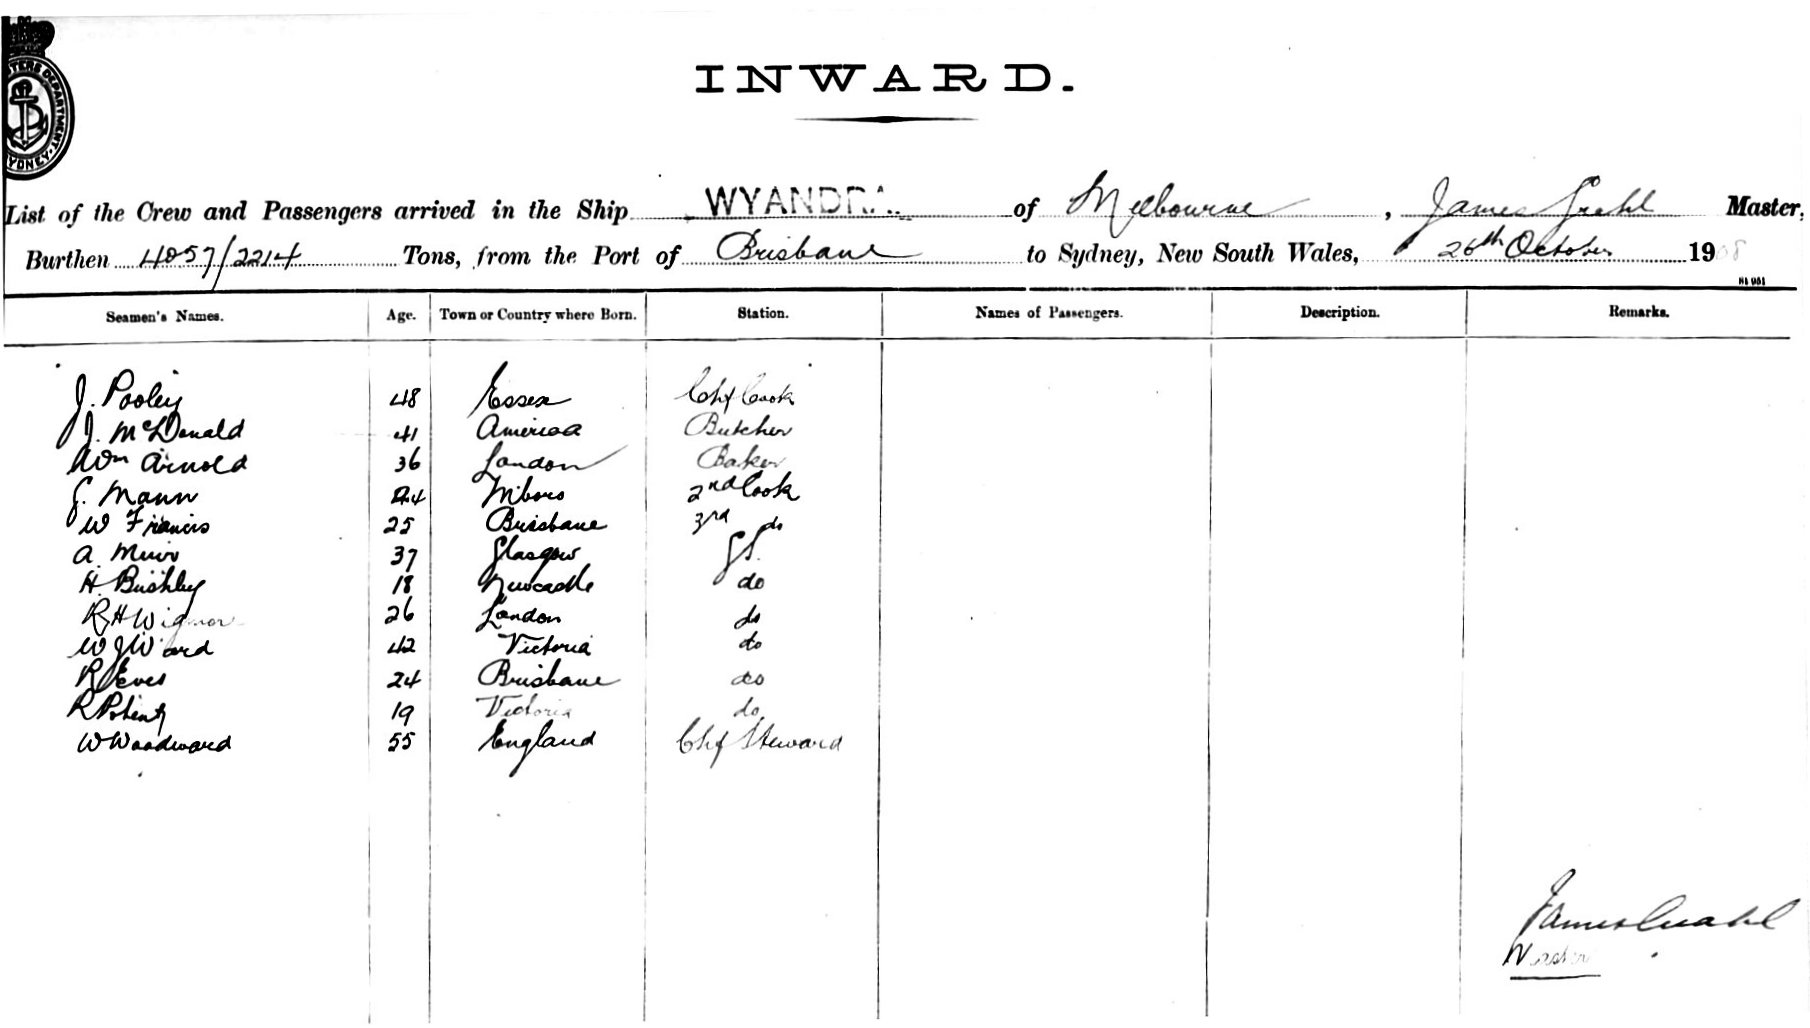 INWARD.
List of the Crew and Passengers arrived in the Ship WYANDRA of Melbourne, James Grahl Master,
Burthen 4057/2214 Tons, from the Port of Brisbane to Sydney, New South Wales, 26th October 1908
Seamen's Names. Age. Town or Country where Born. Station. Names of Passengers. Description. Remarks.
J. Pooley 48 Essex Chf Cook
J. McDonald 41 America Butcher
Wm Arnold 36 London Baker
G. Mann 24 M'boro 2nd Cook
W Francis 25 Brisbane 3rd do
A. Muir 37 Glasgow GS.
H. Bushley 18 Newcastle do
R H Wigmore 26 London do
W J Ward 42 Victoria do
R Eves 24 Brisbane do
R 19 Victoria do
W Woodward 55 England Chf Steward
James Grahl
Master